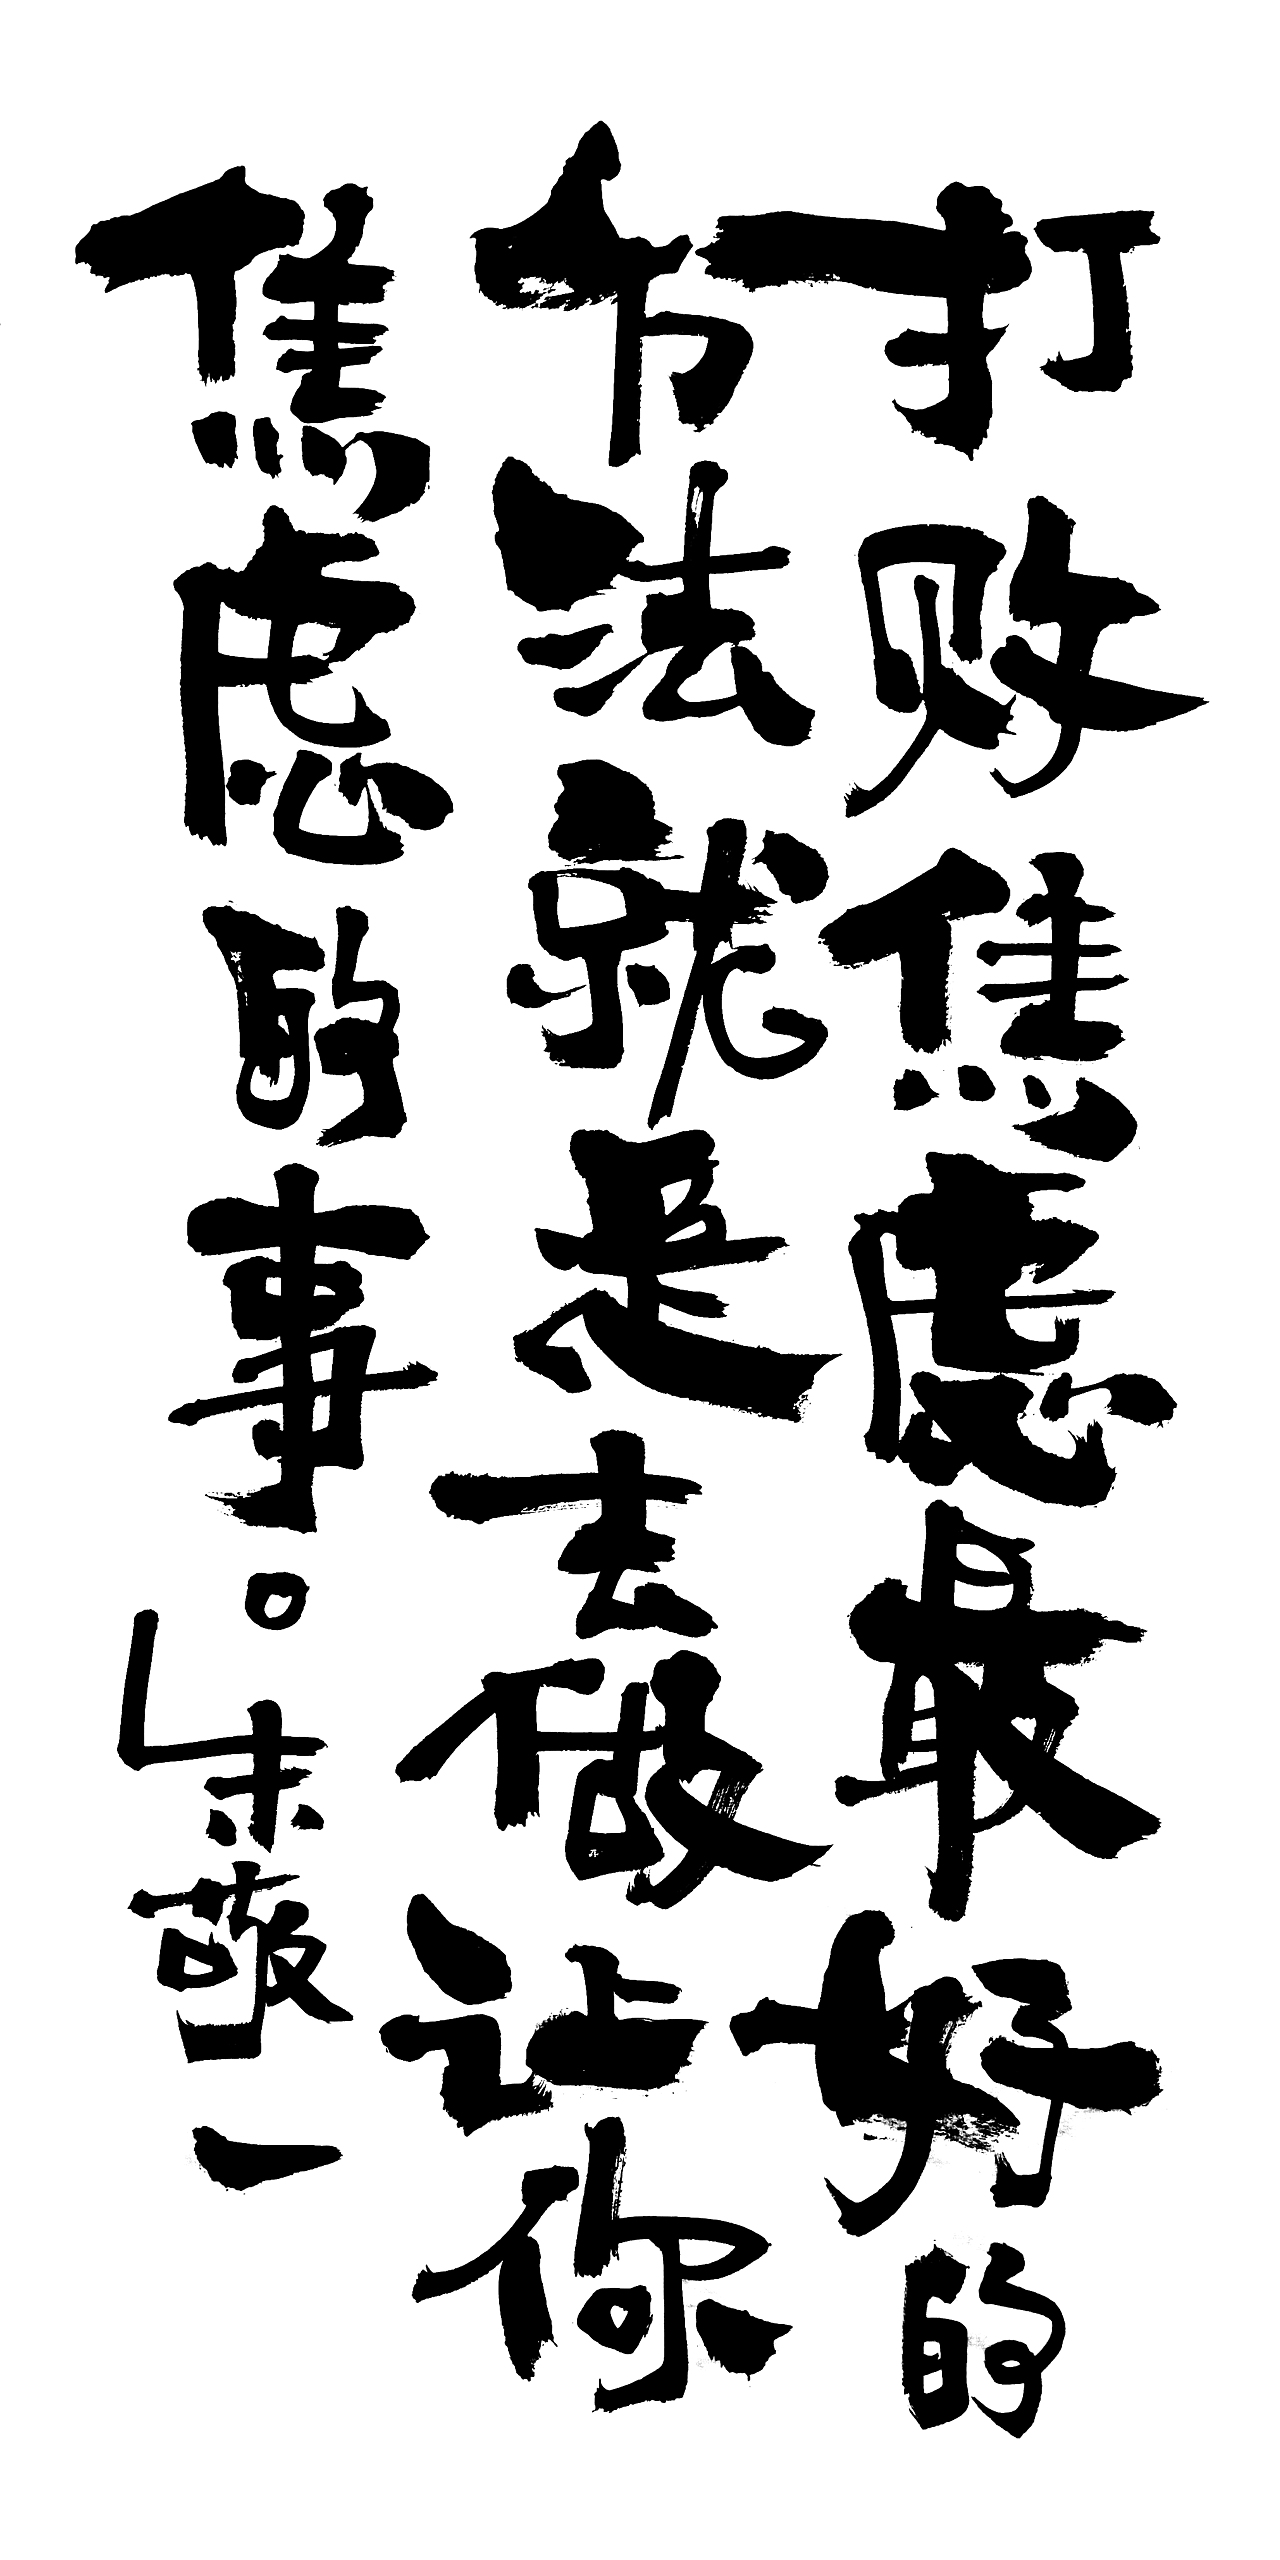 打败焦慮最好的
办法就是去做让你
焦虑的事。朱敬一